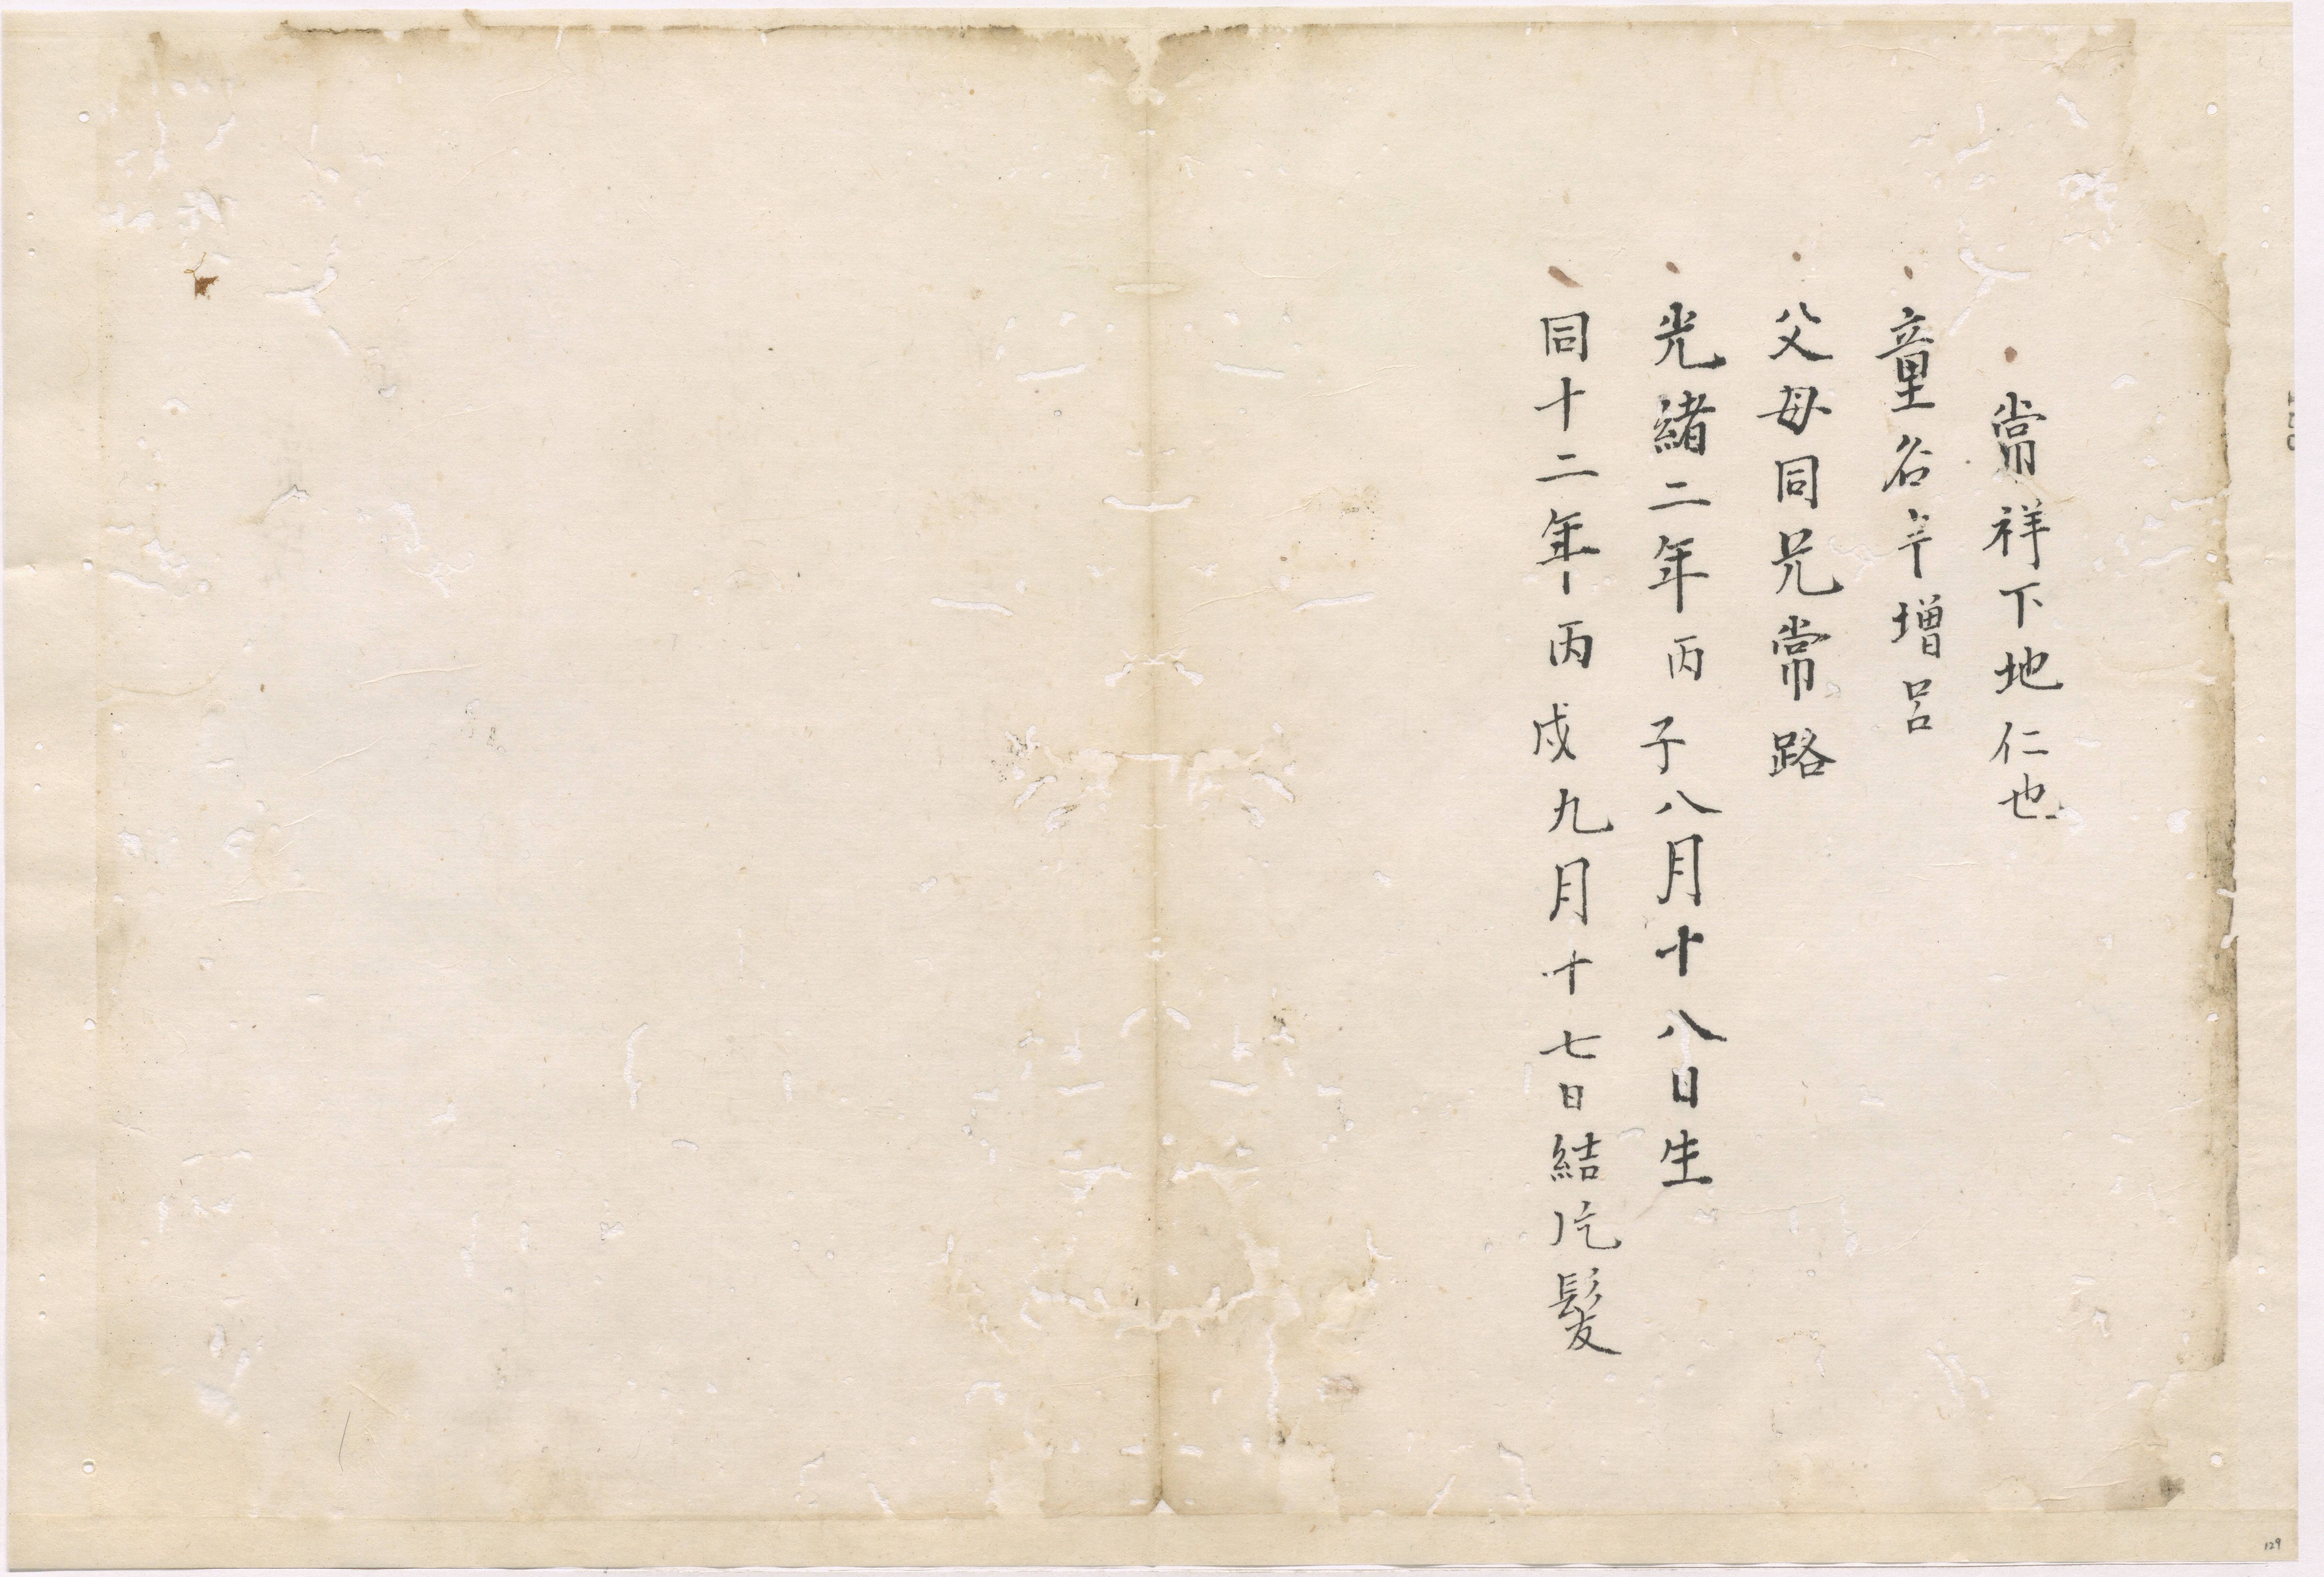 常祥下地仁也
童名増呂
父母同兄常路
光緒二年丙子八月十八日生
同十二年丙戌九月十七日結髪
129